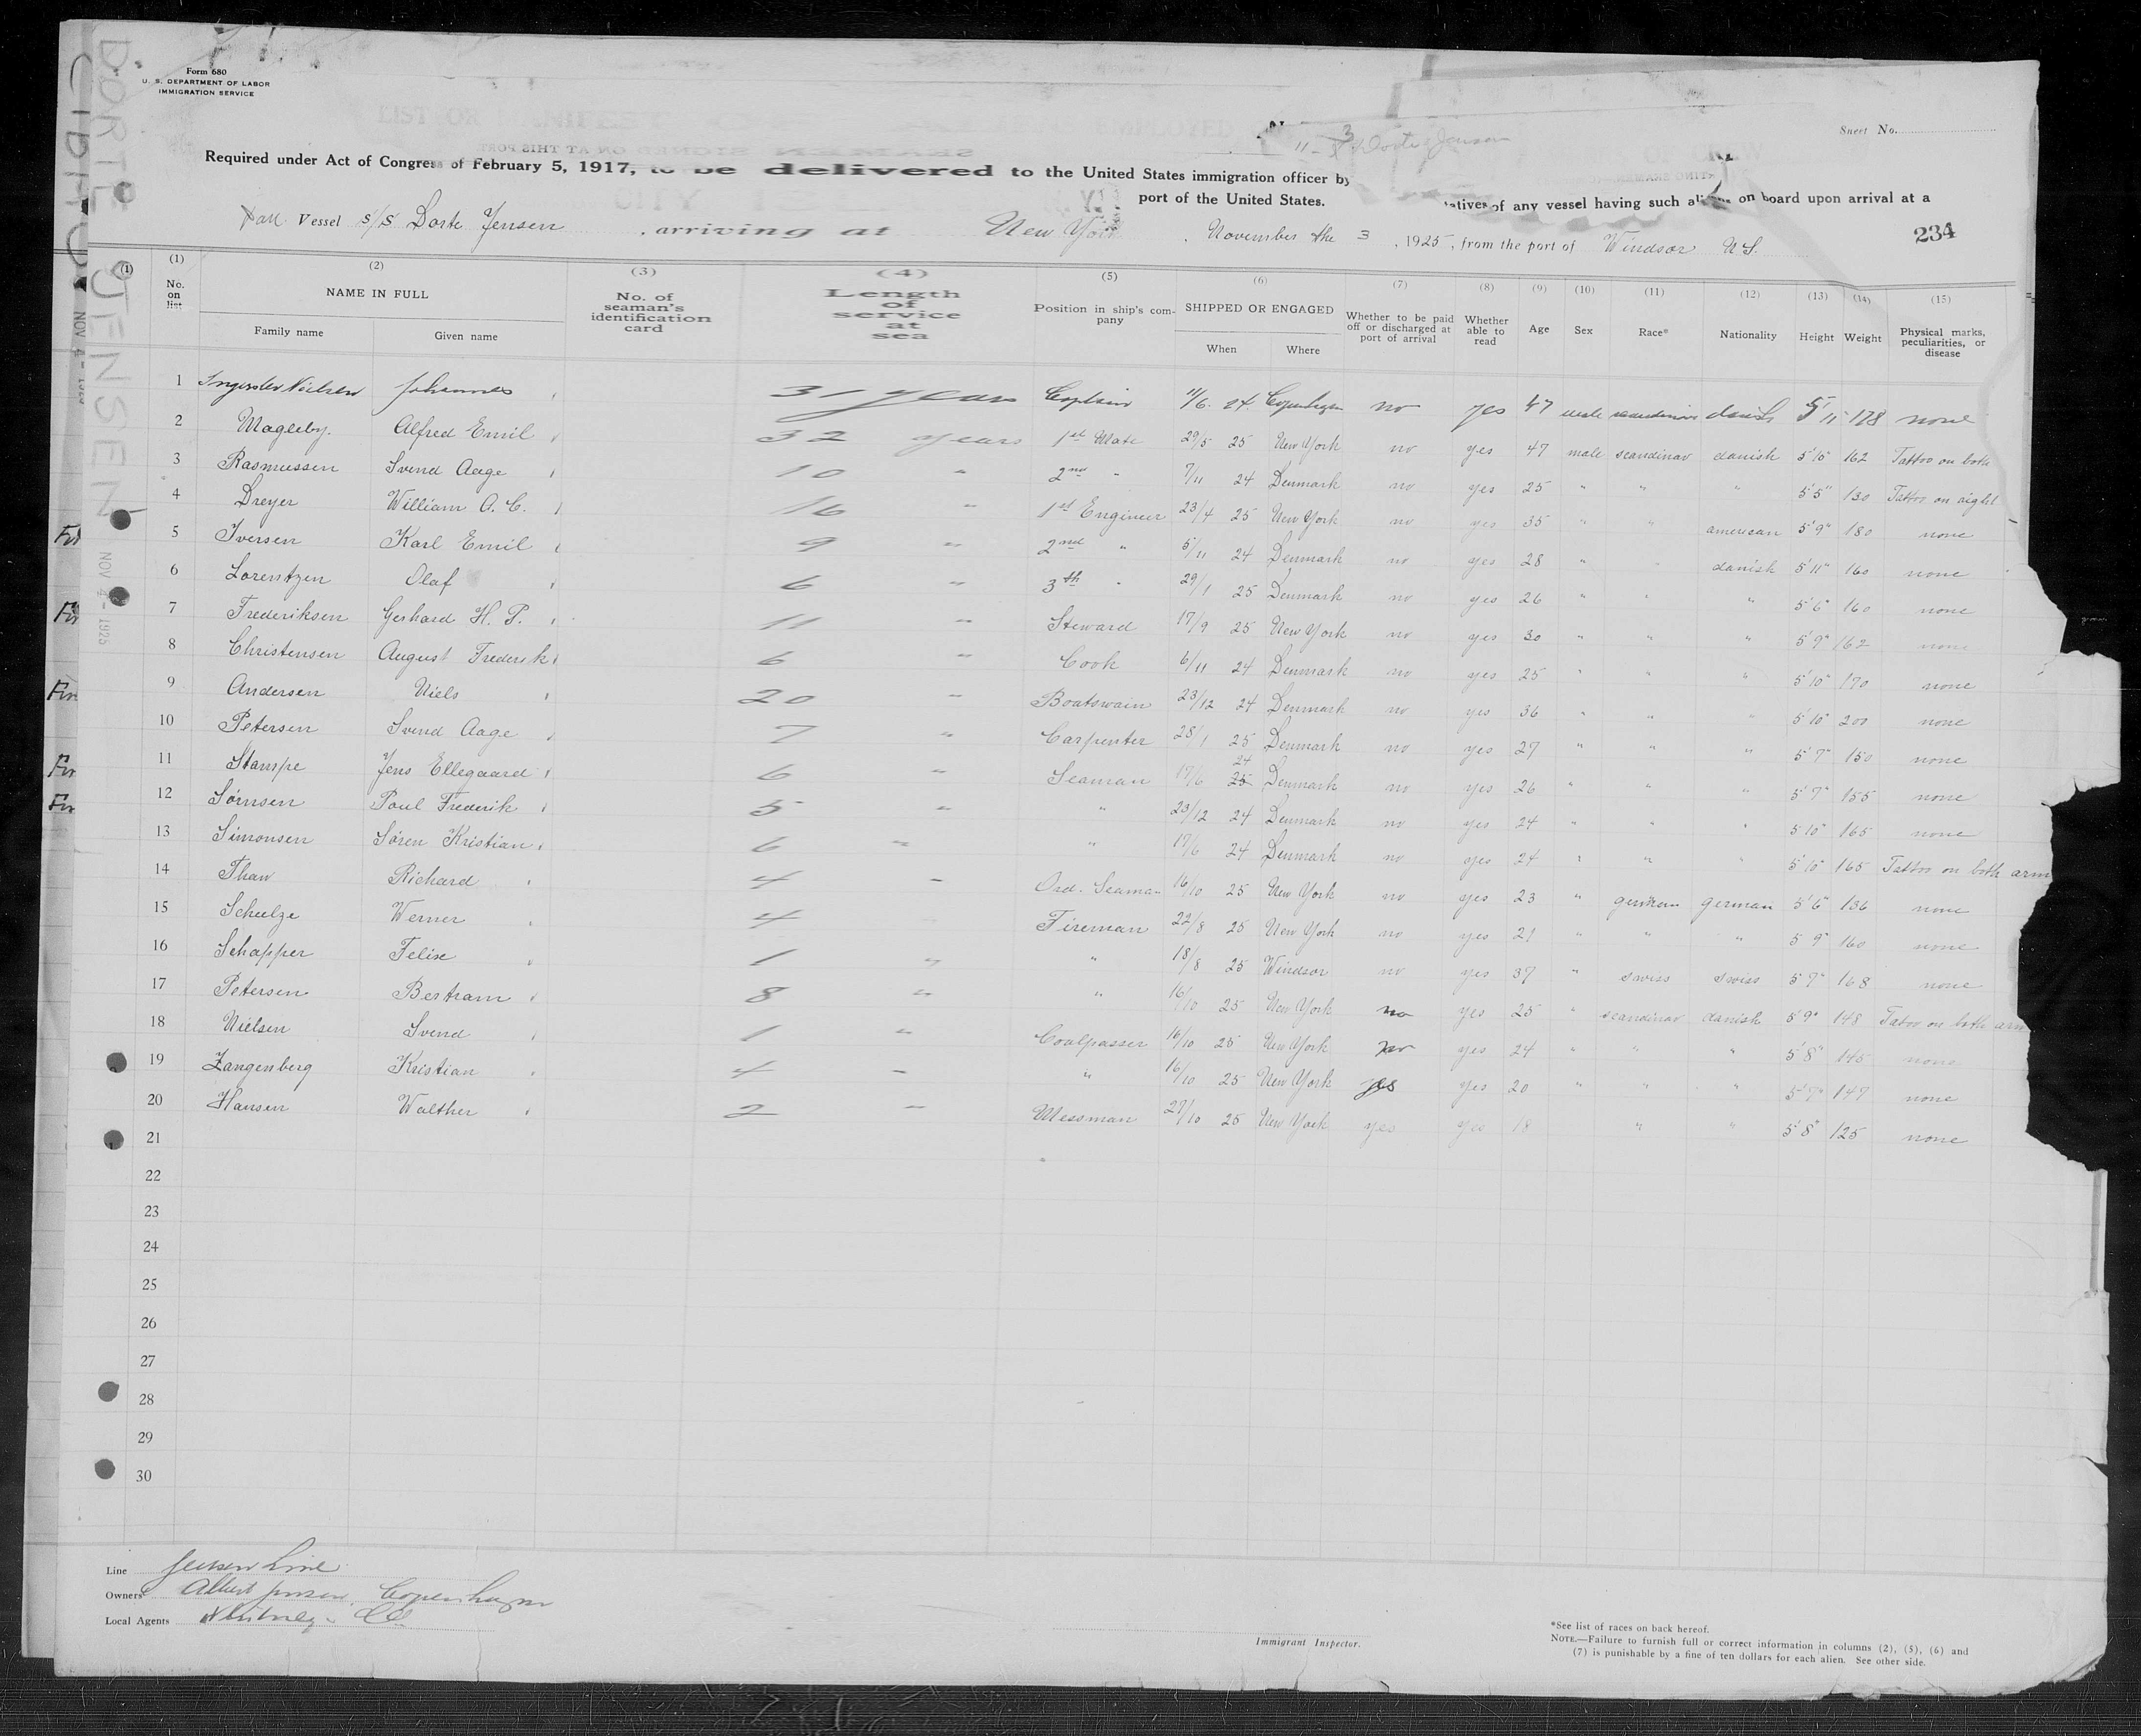 Form 680
U. S. DEPARTMENT OF LABOR
IMMIGRATION SERVICE
Sheet No.
DORTE JENSEN
NOV 4 - 1925
Required under Act of Congress of February 5, 1917, to be delivered to the United States immigration officer by
port of the United States. of any vessel having such on board upon arrival at a
Vessel S/S Dorte Jensen, arriving at New York, November the 3, 1925, from the port of Windsor
234
(1) (1) (2) (3) (4) (5) (6) (7) (8) (9) (10) (11) (12) (13) (14) (15)
No. on list NAME IN FULL No. of seaman's identification card Length of service at sea Position in ship's company SHIPPED OR ENGAGED Whether to be paid off or discharged at port of arrival Whether able to read Age Sex Race* Nationality Height Weight Physical marks, peculiarities, or disease
Family name Given name When Where
1 Nielsen Johannes 31 years Captain 11/6. 24. Copenhagen no yes 47 male danish 5'11 178 none
2 Magleby. Alfred Emil 32 years 1st Mate 29/5 25 New York no yes 47 male scandinav danish 5'10" 162 Tattoo on both
3 Rasmussen Svend Aage 10 " 2nd " 7/11 24 Denmark no yes 25 " " " 5'5" 130 Tattoo on right
4 Dreyer William A. C. 16 " 1st Engineer 23/4 25 New York no yes 35 " " american 5'9" 180 none
5 Iversen Karl Emil 9 " 2nd " 5/11 24 Denmark no yes 28 " " danish 5'11" 160 none
6 Lorentzen Olaf 6 " 3th " 29/1 25 Denmark no yes 26 " " " 5'6" 160 none
7 Frederiksen Gerhard H. P. 11 " Steward 17/9 25 New York no yes 30 " " " 5'9" 162 none
8 Christensen August Frederik 6 " Cook 6/11 24 Denmark no yes 25 " " " 5'10" 170 none
9 Andersen Niels 20 " Boatswain 23/12 24 Denmark no yes 36 " " " 5'10" 200 none
10 Petersen Svend Aage 7 " Carpenter 28/1 25 Denmark no yes 27 " " " 5'7" 150 none
11 Stampe Jens Ellegaard 6 " Seaman 17/6 25 24 Denmark no yes 26 " " " 5'7" 155 none
12 Sørnsen Poul Frederik 5 " " 23/12 24 Denmark no yes 24 " " " 5'10" 165 none
13 Simonsen Sören Kristian 6 " " 17/6 24 Denmark no yes 24 " " " 5'10" 165 Tattoo on both arm
14 Thaw Richard 4 " Ord. Seaman 16/10 25 New York no yes 23 " german german 5'6" 136 none
15 Schulze Werner 4 Fireman 22/8 25 New York no yes 21 " " " 5'9" 160 none
16 Schapper Felix 1 " " 18/8 25 Windsor no yes 37 " swiss swiss 5'7" 168 none
17 Petersen Bertram 8 " " 16/10 25 New York no yes 25 " scandinav danish 5'9" 148 Tatoo on both arm
18 Nielsen Svend 1 " Coalpasser 16/10 25 New York no yes 24 " " " 5'8" 145 none
19 Zangenberg Kristian 4 " " 16/10 25 New York yes yes 20 " " " 5'7" 147 none
20 Hansen Walther 2 " Messman 27/10 25 New York yes yes 18 " " 5'8" 125 none
21
22
23
24
25
26
27
28
29
30
Line Jensen Line
Owners Albert Jensen, Copenhagen
Local Agents
Immigrant Inspector.
*See list of races on back hereof.
NOTE.—Failure to furnish full or correct information in columns (2), (5), (6) and
(7) is punishable by a fine of ten dollars for each alien. See other side.